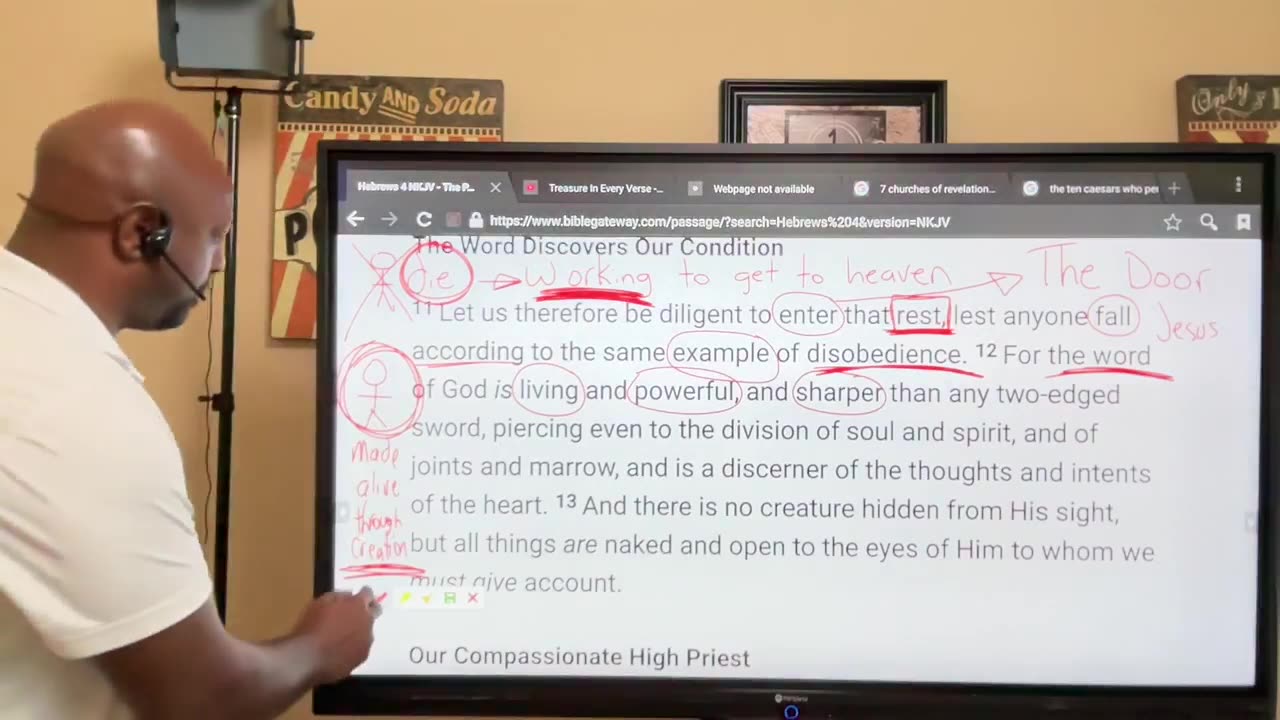 Candy AND Soda
PO
1
Only
Hebrews 4 NKJV - The P...
Treasure In Every Verse -...
Webpage not available
7 churches of revelation...
the ten caesars who per
https://www.biblegateway.com/passage/?search=Hebrews%204&version=NKJV
The Word Discovers Our Condition
die Working to get to heaven The Door
11 Let us therefore be diligent to enter that rest, lest anyone fall
Jesus
according to the same example of disobedience. 12 For the word
of God is living and powerful, and sharper than any two-edged
sword, piercing even to the division of soul and spirit, and of
joints and marrow, and is a discerner of the thoughts and intents
of the heart. 13 And there is no creature hidden from His sight,
but all things are naked and open to the eyes of Him to whom we
must give account.
Made
alive
through
Creation
Our Compassionate High Priest